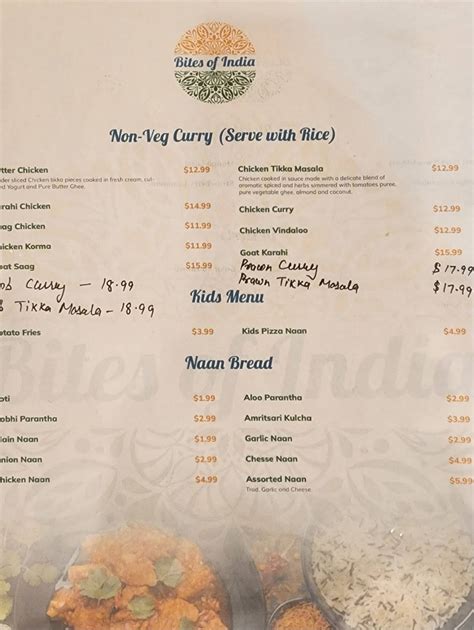 Bites of India
Non-Veg Curry (Serve with Rice)
tter Chicken $12.99
der sliced Chicken tikka pieces cooked in fresh cream, cul-
ed Yogurt and Pure Butter Ghee.
rahi Chicken $14.99
ag Chicken $11.99
icken Korma $11.99
at Saag $15.99
mb Curry - 18.99
b Tikka Masala - 18.99
Chicken Tikka Masala $12.99
Chicken cooked in sauce made with a delicate blend of
aromatic spiced and herbs simmered with tomatoes puree,
pure vegetable ghee, almond and coconut.
Chicken Curry $12.99
Chicken Vindaloo $12.99
Goat Karahi $15.99
Prawn Curry $17.99
Prawn Tikka Masala $17.99
Kids Menu
otato Fries $3.99
Kids Pizza Naan $4.99
Naan Bread
oti $1.99
obhi Parantha $2.99
lain Naan $1.99
nion Naan $2.99
hicken Naan $4.99
Aloo Parantha $2.99
Amritsari Kulcha $3.99
Garlic Naan $2.99
Chesse Naan $4.99
Assorted Naan $5.99
Trad, Garlic and Cheese
Bites of India